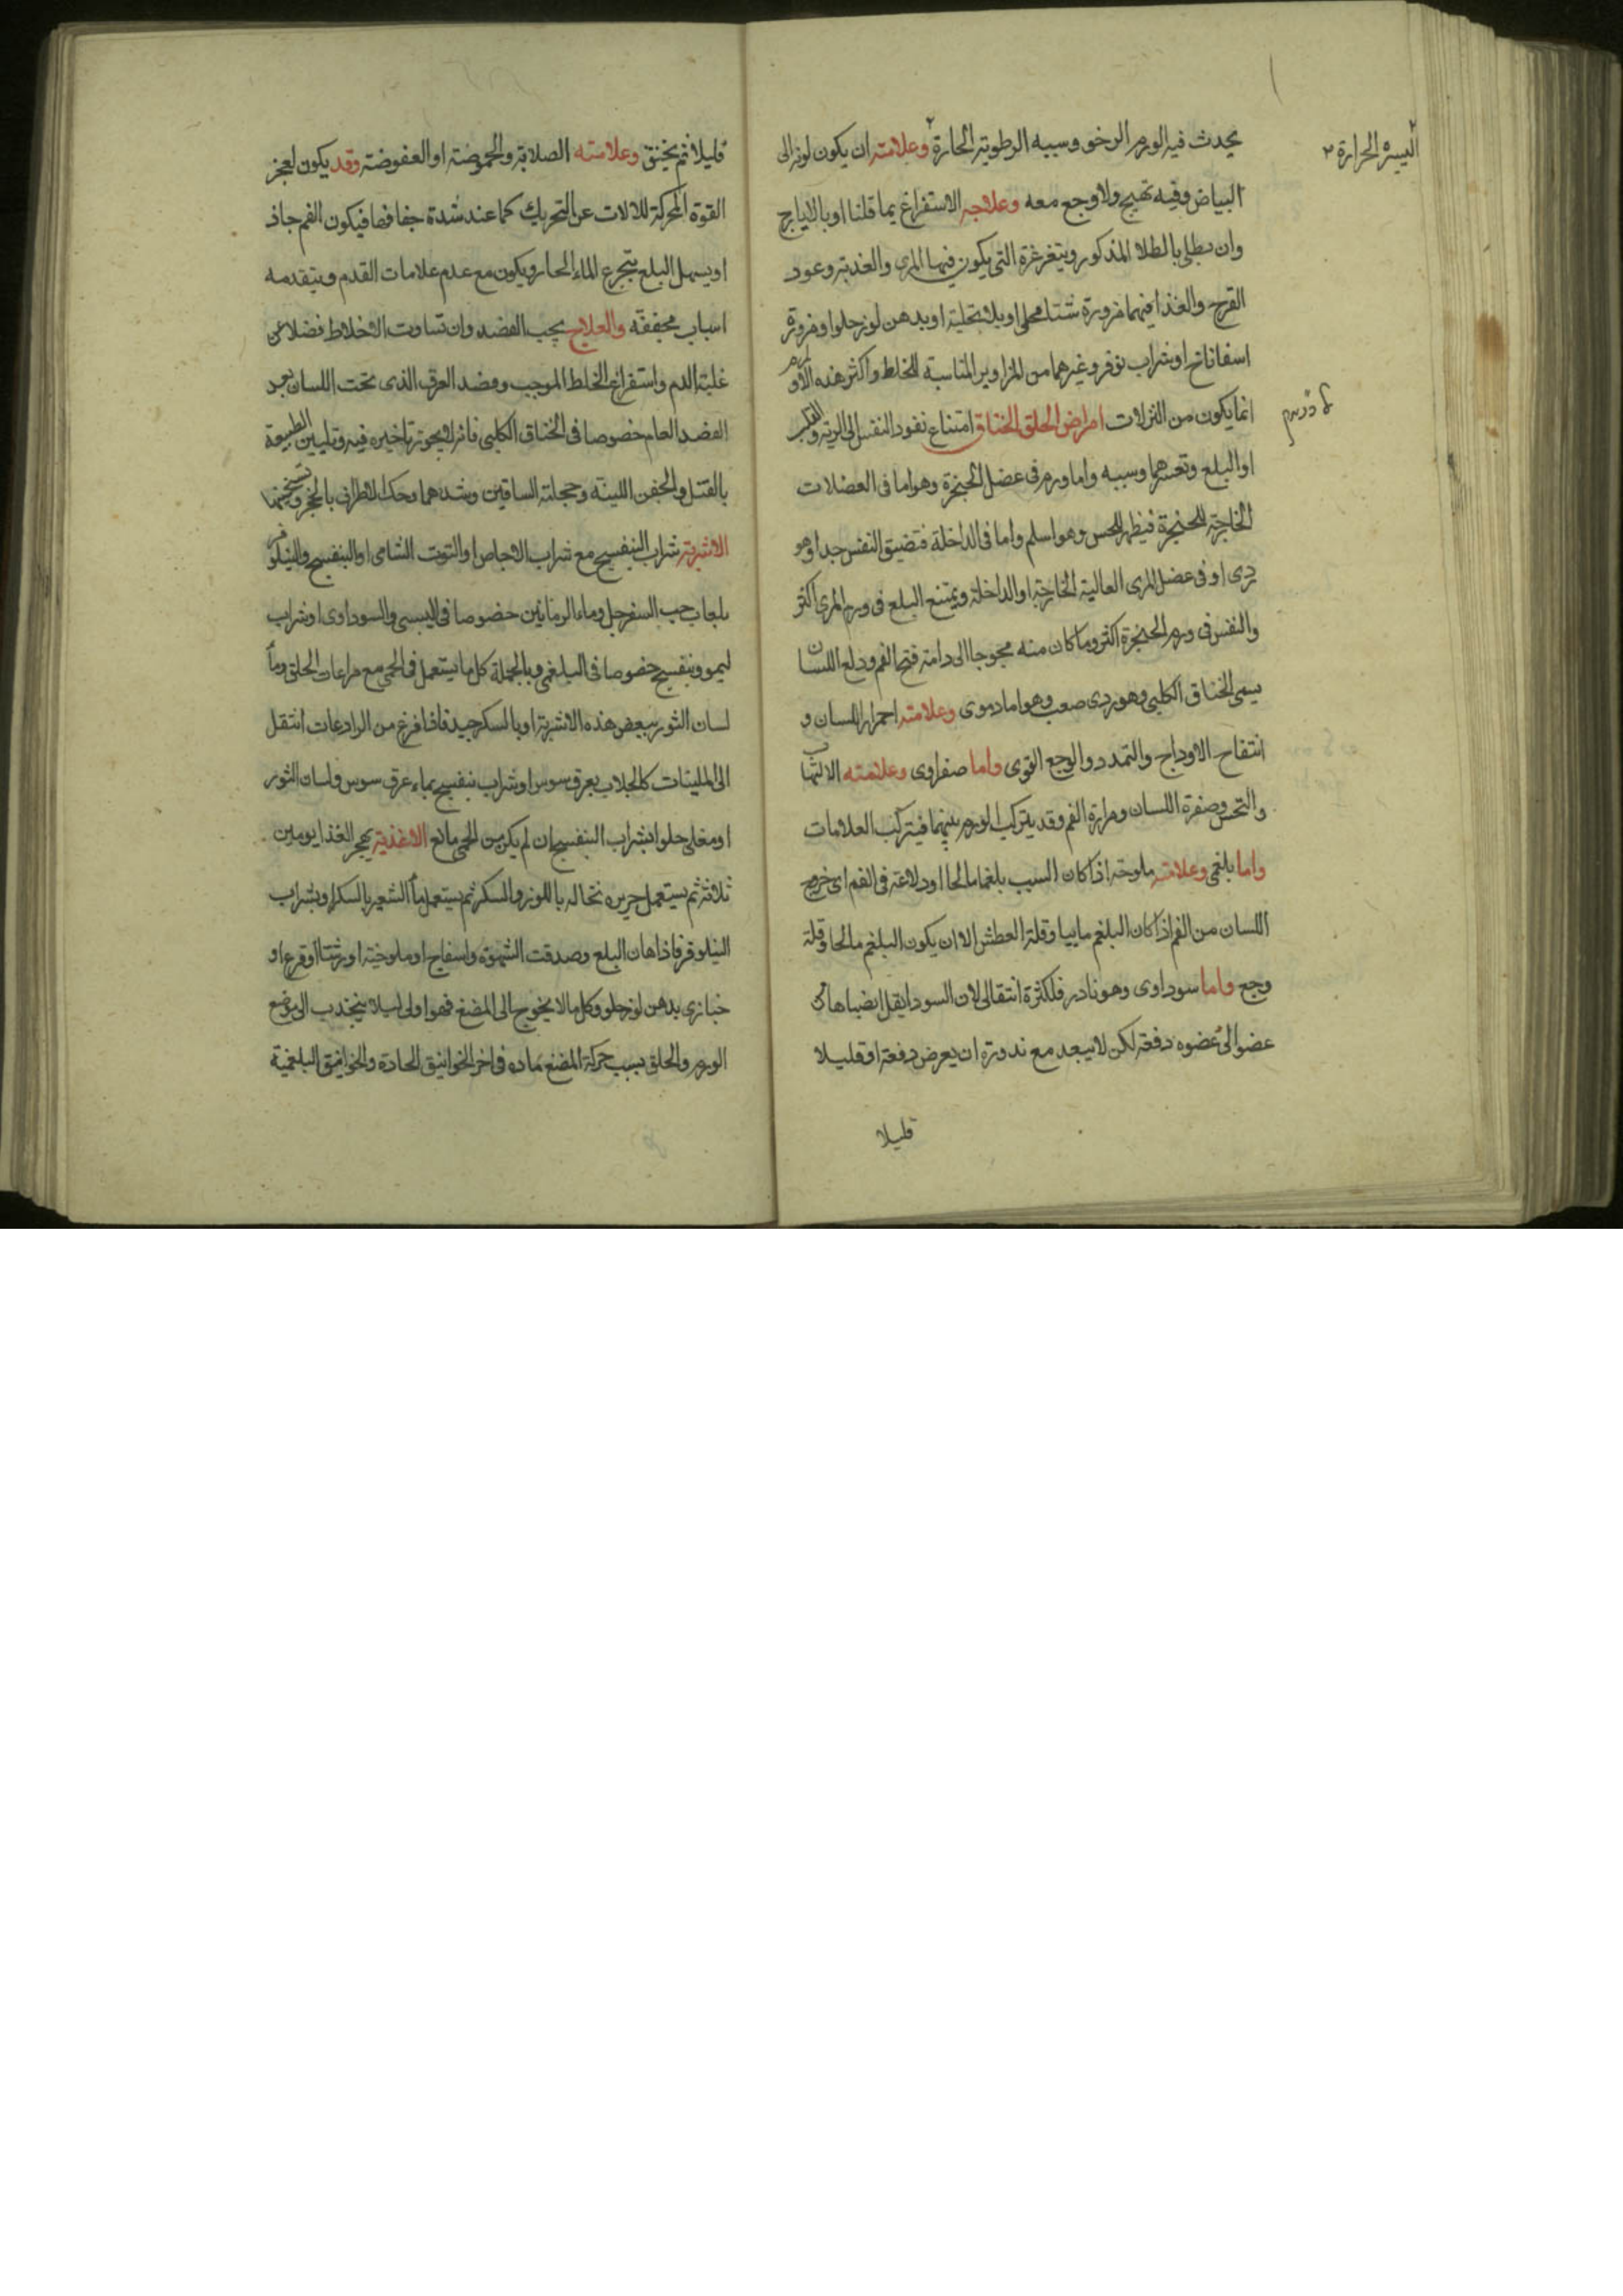 يحدث فيه الورم الرخو وسببه الرطوبة الحارة وعلامته ان يكون لونه الى
اليسيره الحرارة
البياض وفيه تهيج ولا وجع معه وعلاجه الاستفراغ بما قلنا او بالايارج
وان يطلى بالطلا المذكور ويتغرغرة التى يكون فيها المرى والعذبة وعود
القرح والغذا فيهما مزورة محلى او بلا تحلية او بدهن لوز حلو او مزورة
اسفاناخ او شراب نوفر وغيرهما من المزاوير المناسبة للخلط واكثر هذه الاورام
انما يكون من النزلات امراض الحلق الخناق امتناع نفود النفس الى الرية والقلب
او البلع وتعسرهما وسببه واما ورم فى عضل الحنجرة وهو اما فى العضلات
الخارجة للحنجرة فيظهر للحس وهو اسلم واما فى الداخلة فتضيق النفس جدا وهو
ردى او فى عضل المرى العالية الخارجة او الداخلة ويمتنع البلع فى ورم المرى اكثر
والنفس فى ورم الحنجرة اكثر وما كان منه محوجا الى دامة فتح الفم ودلع اللسان
يسمى الخناق الكلبى وهو ردى صعب وهو اما دموى وعلامته احمرار اللسان و
انتفاح الاوداج والتمدد والوجع القوى واما صفراوى وعلامته الالتهاب
والتحس وصفرة اللسان ومرارة الفم وقد يتركب الورم بينهما فيتركب العلامات
واما بلغمى وعلامته ملوحة اذا كان السبب بلغما مالحا او دلاعة فى الفم اى خروج
اللسان من الفم اذا كان البلغم مابيا وقلة العطش الا ان يكون البلغم مالحا وقلة
وجع واما سوداوى وهو نادر فلكثرة انتقالى لان السودا يقل انضبابها من
عضو الى عضوه دفعة لكن لا يبعد مع ندورة ان يعرض دفعة او قليلا
قليلا
قليلا ثم يخنق وعلامته الصلابة والحموضة او العفوضة وقد يكون لعجز
القوة المحركة للالات عن التحريك كما عند شدة جفافها فيكون الفم جاف
او يسهل البلع بتجرع الماء الحار ويكون مع عدم علامات القدم ويتقدمه
اسباب مجففة والعلاج يجب الفصد وان تساوت الاخلاط فضلا عن
غلبة الدم واستفراغ الخلط الموجب وفصد العرق الذى تحت اللسان بعد
الفصد العام خصوصا فى الخناق الكلبى فانه لا يجوز تاخيره فيه وتليين الطبيعة
بالفتل والحقن اللينة وحجامة الساقين وشدهما وحك الاطراف بالحجر وتسخينها
الاشربة شراب البنفسج مع شراب الاجاص او التوت الشامى او البنفسج والنيلوفر
بلعاب حب السفرجل وماء الرمانين خصوصا فى اليبسى والسوداوى او شراب
ليمو وبنفسج خصوصا فى البلغمى وبالجملة كل ما يستعمل فى الحمى مع مراعات الحلق وماء
لسان الثور ببعض هذه الاشربة او بالسكر جيد فاذا فرغ من الرادعات انتقل
الى الملينات كالجلاب بعرق سوس او شراب بنفسج بماء عرق سوس ولسان الثور
او مغلى حلو بشراب البنفسج ان لم يكن من الحمى مانع الاغذية يهجر الغذا يومين
ثلاثة ثم يستعمل حريره نخاله باللوز والسكر ثم يستعمل ماء الشعير بالسكر او بشراب
النيلوفر فاذا هان البلع وصدقت الشهوة واسفاج او ملوخية او رشتا او قرع او
خبازى بدهن لوز حلو وكل ما لا يحوج الى المضغ فهو اولى ليلا ينجذب الى موضع
الورم والحلق بسبب حركة المضغ ماده فى اخر الخوانيق الحادة والخوانيق البلغمية